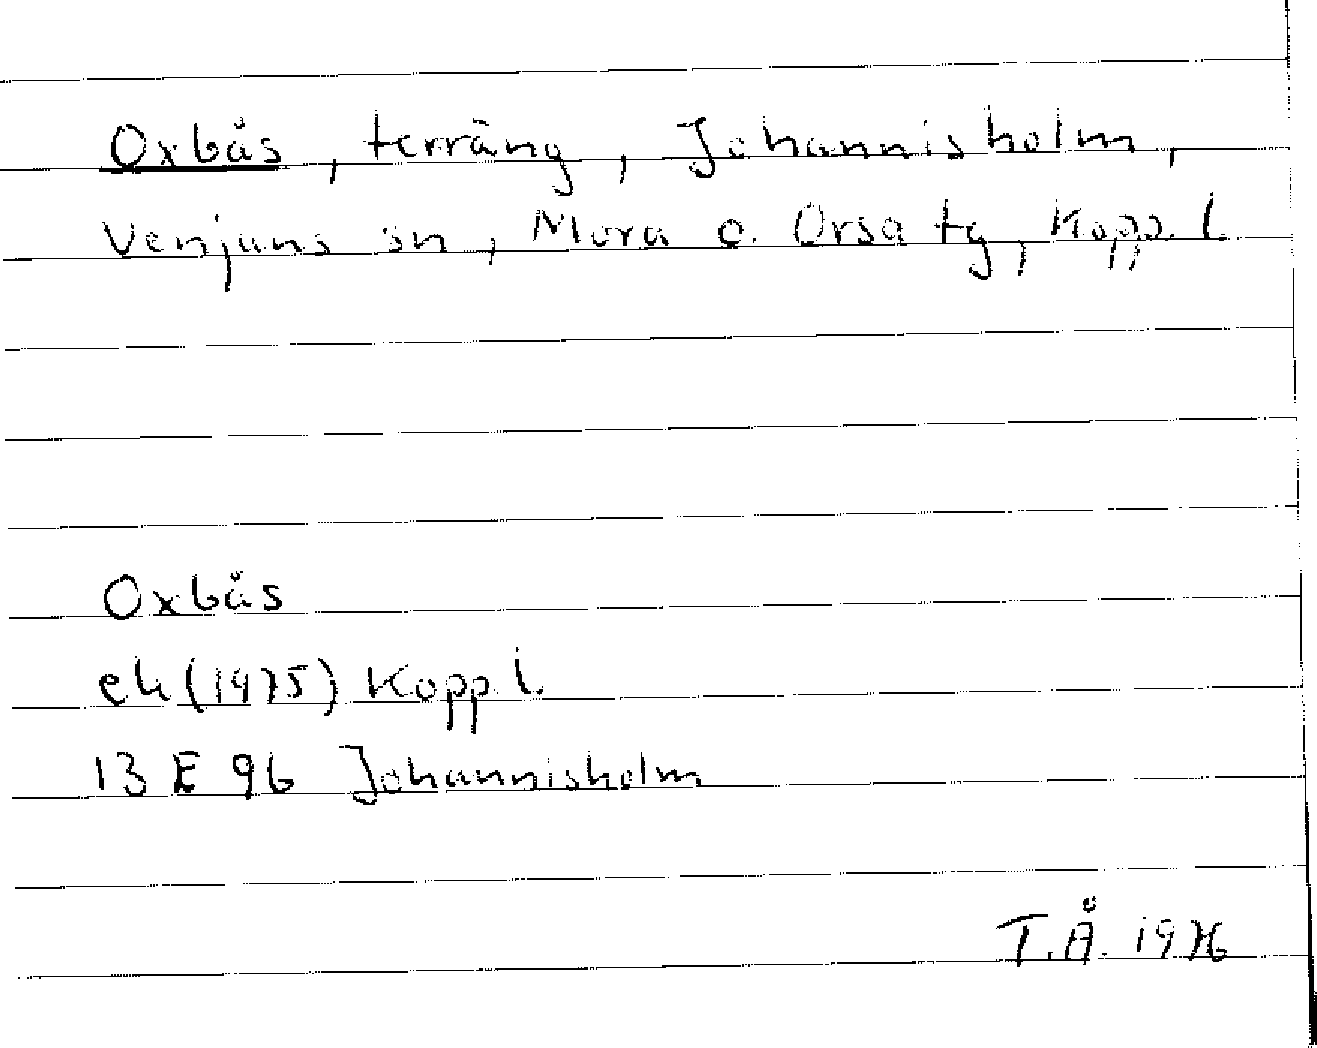 Oxbås, terräng, Johannisholm,
Venjans sn, Mora o. Orsa tg, Kopp. l
Oxbås
ek (1975) Kopp. l.
13 E 9b Johannisholm
T.Å. 1976